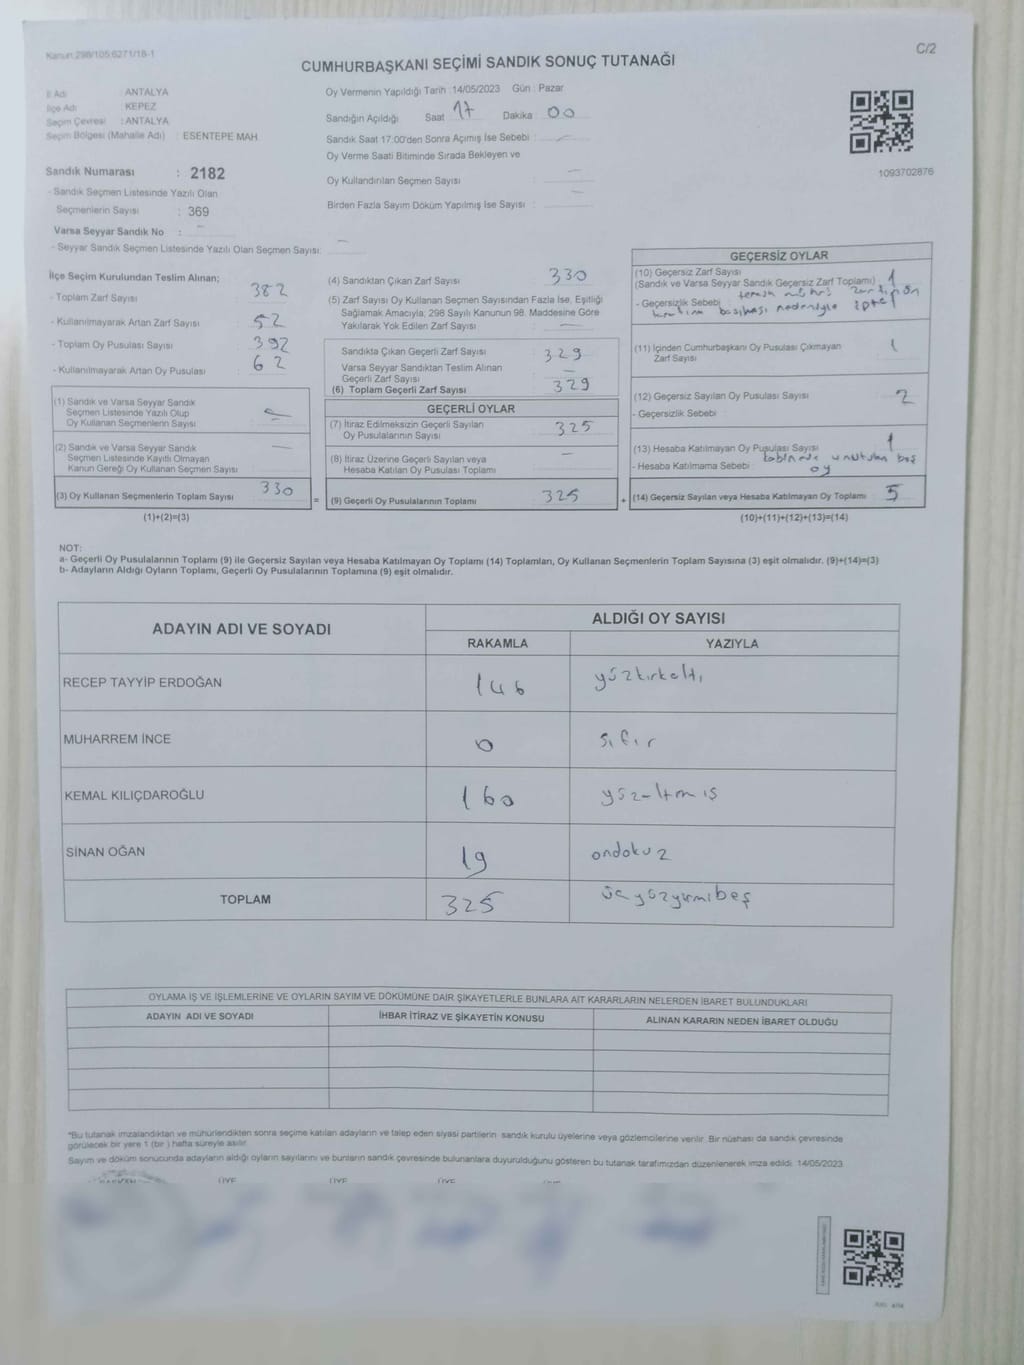 Kanun:298/105,6271/18-1
C/2
CUMHURBAŞKANI SEÇİMİ SANDIK SONUÇ TUTANAĞI
İl Adı : ANTALYA
İlçe Adı : KEPEZ
Seçim Çevresi : ANTALYA
Seçim Bölgesi (Mahalle Adı) : ESENTEPE MAH
Oy Vermenin Yapıldığı Tarih :14/05/2023 Gün : Pazar
Sandığın Açıldığı Saat 17 Dakika 00
Sandık Saat 17:00'den Sonra Açılmış İse Sebebi : —
Oy Verme Saati Bitiminde Sırada Bekleyen ve
Oy Kullandırılan Seçmen Sayısı : —
Birden Fazla Sayım Döküm Yapılmış İse Sayısı : —
1093702876
Sandık Numarası : 2182
- Sandık Seçmen Listesinde Yazılı Olan
Seçmenlerin Sayısı : 369
Varsa Seyyar Sandık No : —
- Seyyar Sandık Seçmen Listesinde Yazılı Olan Seçmen Sayısı: —
İlçe Seçim Kurulundan Teslim Alınan;
- Toplam Zarf Sayısı 382
- Kullanılmayarak Artan Zarf Sayısı 52
- Toplam Oy Pusulası Sayısı 392
- Kullanılmayarak Artan Oy Pusulası 62
(1) Sandık ve Varsa Seyyar Sandık
Seçmen Listesinde Yazılı Olup
Oy Kullanan Seçmenlerin Sayısı
(2) Sandık ve Varsa Seyyar Sandık
Seçmen Listesinde Kayıtlı Olmayan
Kanun Gereği Oy Kullanan Seçmen Sayısı —
(3) Oy Kullanan Seçmenlerin Toplam Sayısı 330
(1)+(2)=(3)
(4) Sandıktan Çıkan Zarf Sayısı 330
(5) Zarf Sayısı Oy Kullanan Seçmen Sayısından Fazla İse, Eşitliği
Sağlamak Amacıyla, 298 Sayılı Kanunun 98. Maddesine Göre
Yakılarak Yok Edilen Zarf Sayısı —
Sandıkta Çıkan Geçerli Zarf Sayısı 329
Varsa Seyyar Sandıktan Teslim Alınan
Geçerli Zarf Sayısı —
(6) Toplam Geçerli Zarf Sayısı 329
GEÇERLİ OYLAR
(7) İtiraz Edilmeksizin Geçerli Sayılan
Oy Pusulalarının Sayısı 325
(8) İtiraz Üzerine Geçerli Sayılan veya
Hesaba Katılan Oy Pusulası Toplamı —
= (9) Geçerli Oy Pusulalarının Toplamı 325 +
GEÇERSİZ OYLAR
(10) Geçersiz Zarf Sayısı
(Sandık ve Varsa Seyyar Sandık Geçersiz Zarf Toplamı) 1
- Geçersizlik Sebebi : tercih mührü zarfın
basılması nedeniyle iptal
(11) İçinden Cumhurbaşkanı Oy Pusulası Çıkmayan
Zarf Sayısı 1
(12) Geçersiz Sayılan Oy Pusulası Sayısı 2
- Geçersizlik Sebebi :
(13) Hesaba Katılmayan Oy Pusulası Sayısı 1
- Hesaba Katılmama Sebebi : kabinde unutulan boş
oy
(14) Geçersiz Sayılan veya Hesaba Katılmayan Oy Toplamı 5
(10)+(11)+(12)+(13)=(14)
NOT:
a- Geçerli Oy Pusulalarının Toplamı (9) ile Geçersiz Sayılan veya Hesaba Katılmayan Oy Toplamı (14) Toplamları, Oy Kullanan Seçmenlerin Toplam Sayısına (3) eşit olmalıdır. (9)+(14)=(3)
b- Adayların Aldığı Oyların Toplamı, Geçerli Oy Pusulalarının Toplamına (9) eşit olmalıdır.
ADAYIN ADI VE SOYADI ALDIĞI OY SAYISI
RAKAMLA YAZIYLA
RECEP TAYYİP ERDOĞAN 146 yüzkırkaltı
MUHARREM İNCE 0 sıfır
KEMAL KILIÇDAROĞLU 160 yüzaltmış
SİNAN OĞAN 19 ondokuz
TOPLAM 325 üçyüzyirmibeş
OYLAMA İŞ VE İŞLEMLERİNE VE OYLARIN SAYIM VE DÖKÜMÜNE DAİR ŞİKAYETLERLE BUNLARA AİT KARARLARIN NELERDEN İBARET BULUNDUKLARI
ADAYIN ADI VE SOYADI İHBAR İTİRAZ VE ŞİKAYETİN KONUSU ALINAN KARARIN NEDEN İBARET OLDUĞU
*Bu tutanak imzalandıktan ve mühürlendikten sonra seçime katılan adayların ve talep eden siyasi partilerin sandık kurulu üyelerine veya gözlemcilerine verilir. Bir nüshası da sandık çevresinde
görülecek bir yere 1 (bir ) hafta süreyle asılır.
Sayım ve döküm sonucunda adayların aldığı oyların sayılarını ve bunların sandık çevresinde bulunanlara duyurulduğunu gösteren bu tutanak tarafımızdan düzenlenerek imza edildi. 14/05/2023
ÜYE ÜYE ÜYE